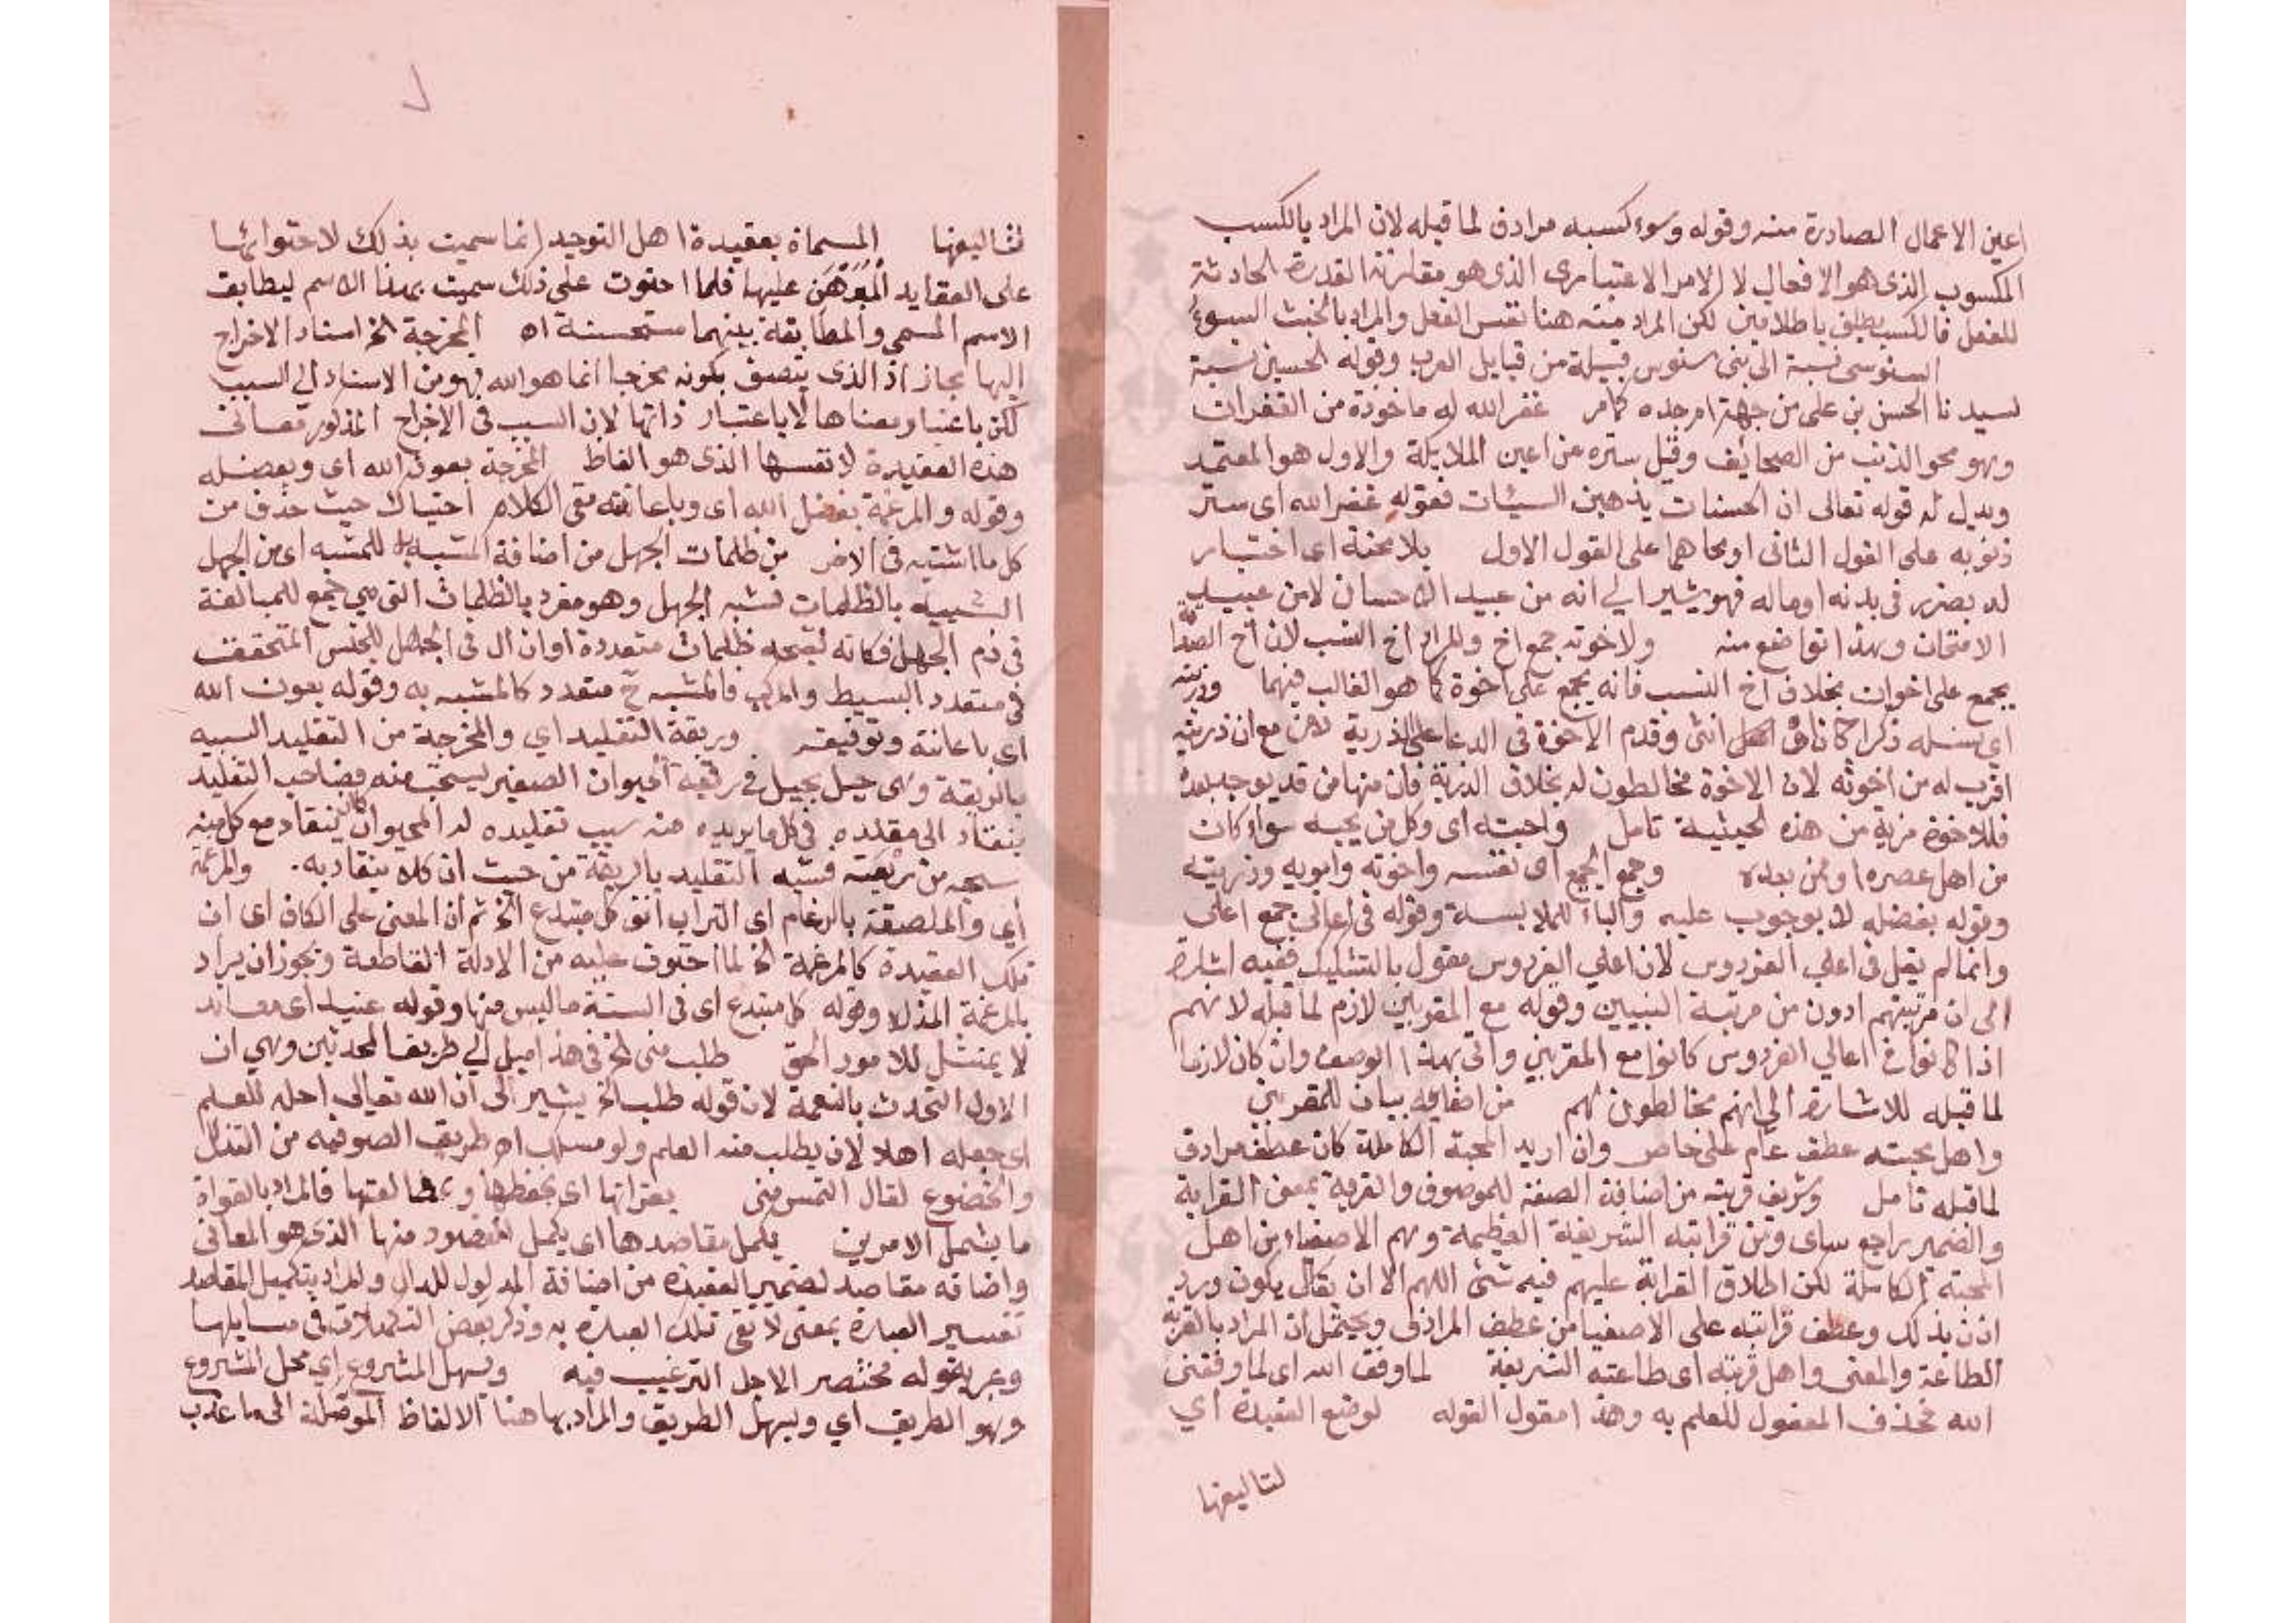 اعين الاعمال الصادرة منه وقوله وسوء كسبه مرادف لما قبله لان المراد بالكسب
المكسوب الذى هو الافعال لا الامر الاعتبارى الذى هو مقارنة القدرة الحادثة
للفعل فالكسب يطلق باطلاقين لكن المراد منه هنا نفس الفعل والمراد بالخبث السوء
السنوسى نسبة الى بنى سنوس قبيلة من قبايل العرب وقوله الحسينى نسبة
لسيدنا الحسن بن على من جهة ام جده كما مر غفر الله له ماخوذة من الغفران
وهو محو الذنب من الصحائف وقيل ستره عن اعين الملايكة والاول هو المعتمد
ويدل له قوله تعالى ان الحسنات يذهبن السيئات فقوله غفر الله اى ستر
ذنوبه على القول الثانى او محاها على القول الاول بلا محنة اى اختبار
له بضرر فى بدنه او ماله فهو يشير الي انه من عبيد الاحسان لا من عبيد
الامتحان وهذا تواضع منه ولاخوته جمع اخ والمراد اخ النسب لان اخ الصداقة
يجمع على اخوان بخلاف اخ النسب فانه يجمع على اخوة كما هو الغالب فيهما وذريته
اى نسله ذكرا كان او انثى وقدم الاخوة فى الدعا على الذرية مع ان ذريته
اقرب له من اخوته لان الاخوة مخالطون له بخلاف الذرية فان منها من قد يوجد بعده
فللاخوة مزية من هذه الحيثية تامل واحبته اى وكل من يحبه سواء كان
من اهل عصره او من بعده وجمع الجمع اى نفسه واخوته وابويه وذريته
وقوله بفضله لا بوجوب عليه والباء للملابسة وقوله فى اعالى جمع اعلى
وانما لم يقل فى اعلى الفردوس لان اعلي الفردوس مقول بالتشكيك ففيه اشارة
الى ان مرتبتهم ادون من مرتبة النبيين وقوله مع المقربين لازم لما قبله لانهم
اذا كانوا فى اعالي الفردوس كانوا مع المقربين واتى بهذا الوصف وان كان لازما
لما قبله للاشارة الي انهم مخالطون لهم من اصفيايه بيان للمقربين
واهل محبته عطف عام على خاص وان اريد المحبة الكاملة كان عطف مرادف
لما قبله تامل وشريف قربته من اضافة الصفة للموصوف والقربة بمعنى القرابة
والضمير راجع اى ومن قرابته الشريفة العظيمة وهم الاصفياء من اهل
المحبة الكاملة لكن اطلاق القرابة عليهم فيه شئ اللهم الا ان يقال يكون ورد
اذن بذلك وعطف قرابته على الاصفيا من عطف المرادف ويحتمل ان المراد بالقربة
الطاعة والمعنى واهل قربته اى طاعته الشريفة لما وفق الله اى لما وفقنى
الله فحذف المفعول للعلم به وهذا مقول القوله لوضع العقيدة اي
لتاليفها
لتاليفها المسماة بعقيدة اهل التوحيد انما سميت بذلك لاحتوائها
على العقايد المبرهن عليها فلما احتوت على ذلك سميت بهذا الاسم ليطابق
الاسم المسمى والمطابقة بينهما مستحسنة اه المخرجة الخ اسناد الاخراج
اليها مجاز اذ الذى يتصف بكونه مخرجا انما هو الله فهو من الاسناد الى السبب
لكن باعتبار معناها لا باعتبار ذاتها لان السبب فى الاخراج المذكور معانى
هذه العقيدة لا نفسها الذى هو الفاظ المخرجة بعون الله اى وبفضله
وقوله والمرغمة بفضل الله اى وباعانته ففى الكلام احتباك حيث حذف من
كل ما اثبته فى الاخر من ظلمات الجهل من اضافة المشبه به للمشبه اى من الجهل
الشبيه بالظلمات فشبه الجهل وهو مفرد بالظلمات التى هي جمع للمبالغة
فى ذم الجهل فكانه لقبحه ظلمات متعددة او ان ال فى الجهل للجنس المتحقق
فى متعدد البسيط والمركب فالمشبه ح متعدد كالمشبه به وقوله بعون الله
اى باعانة وتوفيقه وربقة التقليد اي والمخرجة من التقليد الشبيه
بالربقة وهى حبل يجعل فى رقبة الحيوان الصغير ليسحب منه فصاحب التقليد
ينقاد الى مقلده فى كل ما يريده منه بسبب تقليده له كالحيوان ينقاد مع كل من
سحبه من ربقته فشبه التقليد بالربقة من حيث ان كلا ينقاد به. والمرغمة
اي والملصقة بالرغام اى التراب انف كل مبتدع الخ ثم ان المعنى على الكاف اى ان
تلك العقيدة كالمرغمة الخ لما احتوت عليه من الادلة القاطعة ويجوز ان يراد
بالمرغمة المذلة وقوله كل مبتدع اى فى السنة ما ليس منها وقوله عنيد اى معاند
لا يمتثل للامور الحق طلب منى الخ فى هذا ميل الي طريقة المحدثين وهي ان
الاولى التحدث بالنعمة لان قوله طلب الخ يشير الى ان الله تعالى احله للعلم
اى جعله اهلا لان يطلب منه العلم ولو مسلك طريق الصوفيه من التذلل
والخضوع لقال التمس منى بقراتها اى بحفظها وبمطالعتها فالمراد بالقراة
ما يشمل الامرين يكمل مقاصدها اى يكمل المقصود منها الذى هو المعانى
واضافة مقاصد لضمير العقيدة من اضافة المدلول للدال والمراد بتكميل المقاصد
تفسير العبارة بمعنى لا تفى تلك العبارة به وذكر بعض التكملات فى مسايلها
وعبر بقوله مختصر لاجل الترغيب فيه ويسهل المشروع اي محل المشروع
وهو الطريق اي ويسهل الطريق والمراد بها هنا الالفاظ الموصلة الى ما عذب